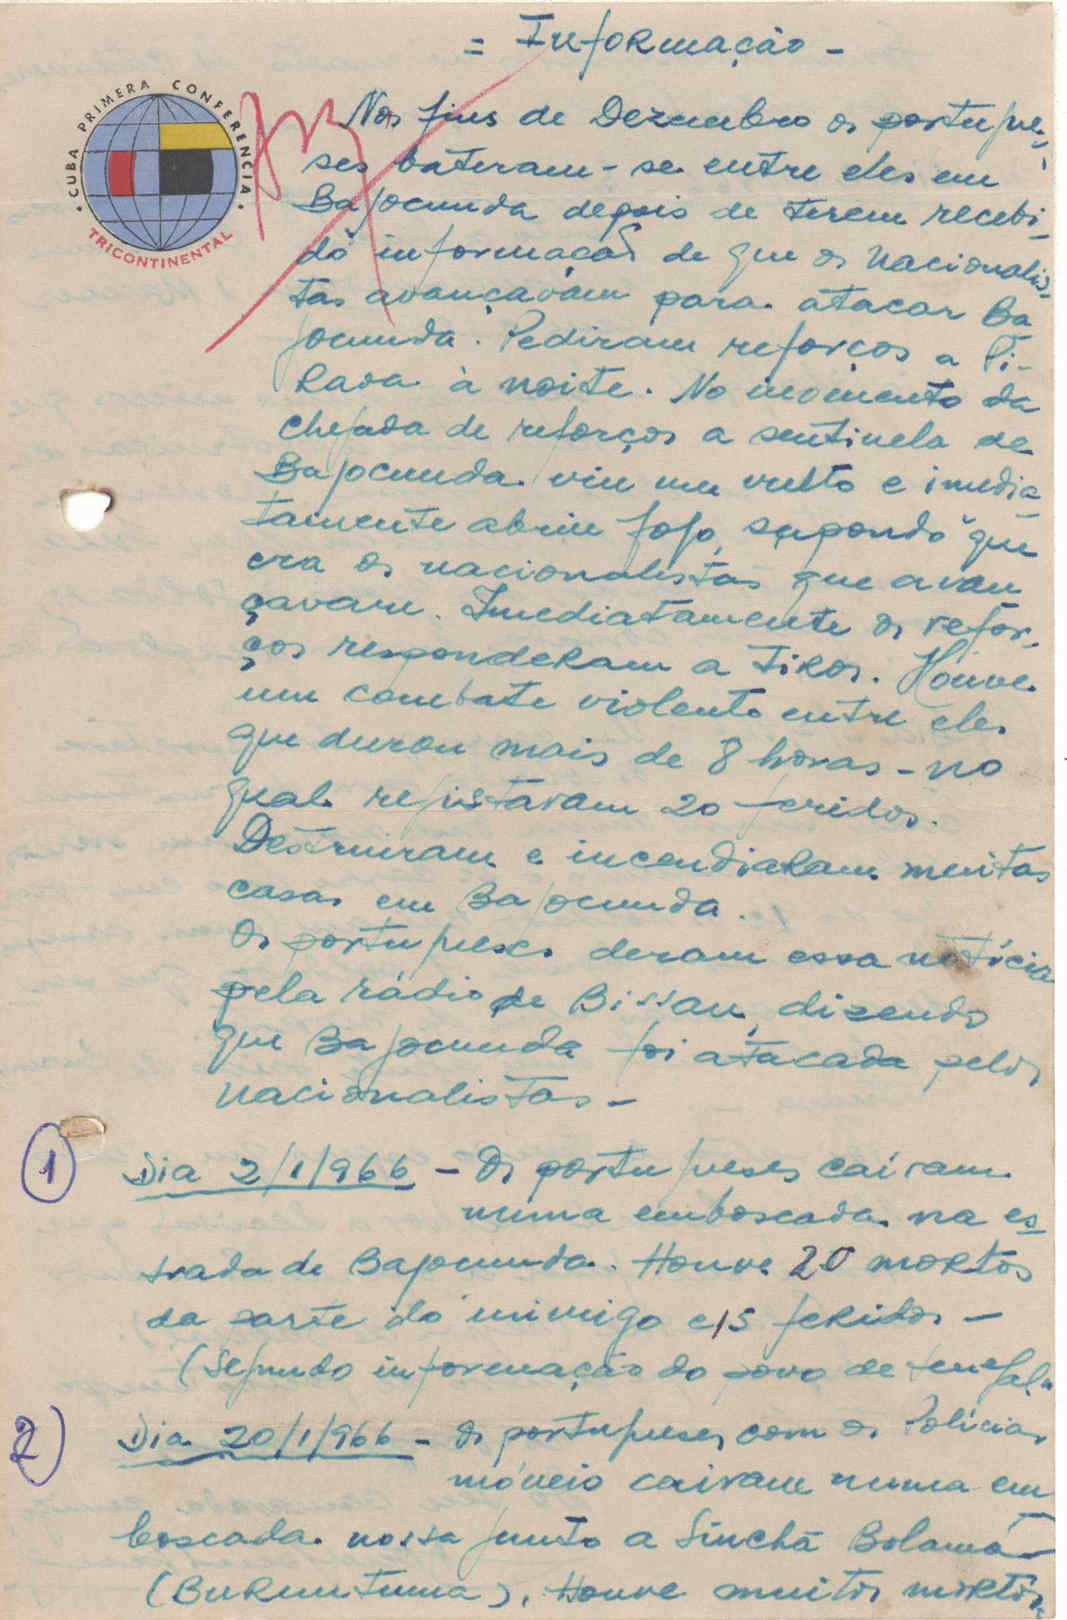 = Informação -
CUBA PRIMERA CONFERENCIA
TRICONTINENTAL
Nos fins de Dezembro os portugue-
ses bateram-se entre eles em
Bajocunda depois de terem recebi-
do informação de que os nacionalis-
tas avançavam para atacar Ba
jocunda. Pediram reforços a Pi-
rada à noite. No momento da
chegada de reforços a sentinela de
Bajocunda viu um vulto e imedia
tamente abriu fogo, supondo que
era os nacionalistas que avan
çavam. Imediatamente os refor-
ços responderam a tiros. Houve
um combate violento entre eles
que durou mais de 8 horas - no
qual registavam 20 feridos.
Destruiram e incendiaram muitas
casas em Bajocunda.
Os portugueses deram essa notícia
pela rádio de Bissau, dizendo
que Bajocunda foi atacada pelos
nacionalistas -
1 Dia 2/1/966 - Os portugueses caíram
numa emboscada na es
trada de Bajocunda. Houve 20 mortos
da parte do inimigo e 15 feridos -
(Segundo informação do povo de
2) Dia 20/1/966 - Os portugueses com os Polícias
caíram numa em
boscada nossa junto a Sinchã Bolama
(Buruntuma). Houve muitos mortos.